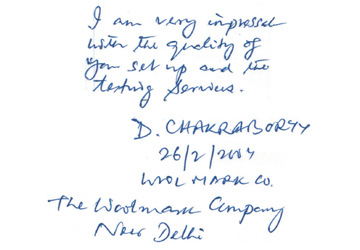 I am very impressed
with the quality of
you set up and the
testing services.
D. CHAKRABORTY
26/2/2004
WOOL MARK CO.
The Woolmark Company
New Delhi